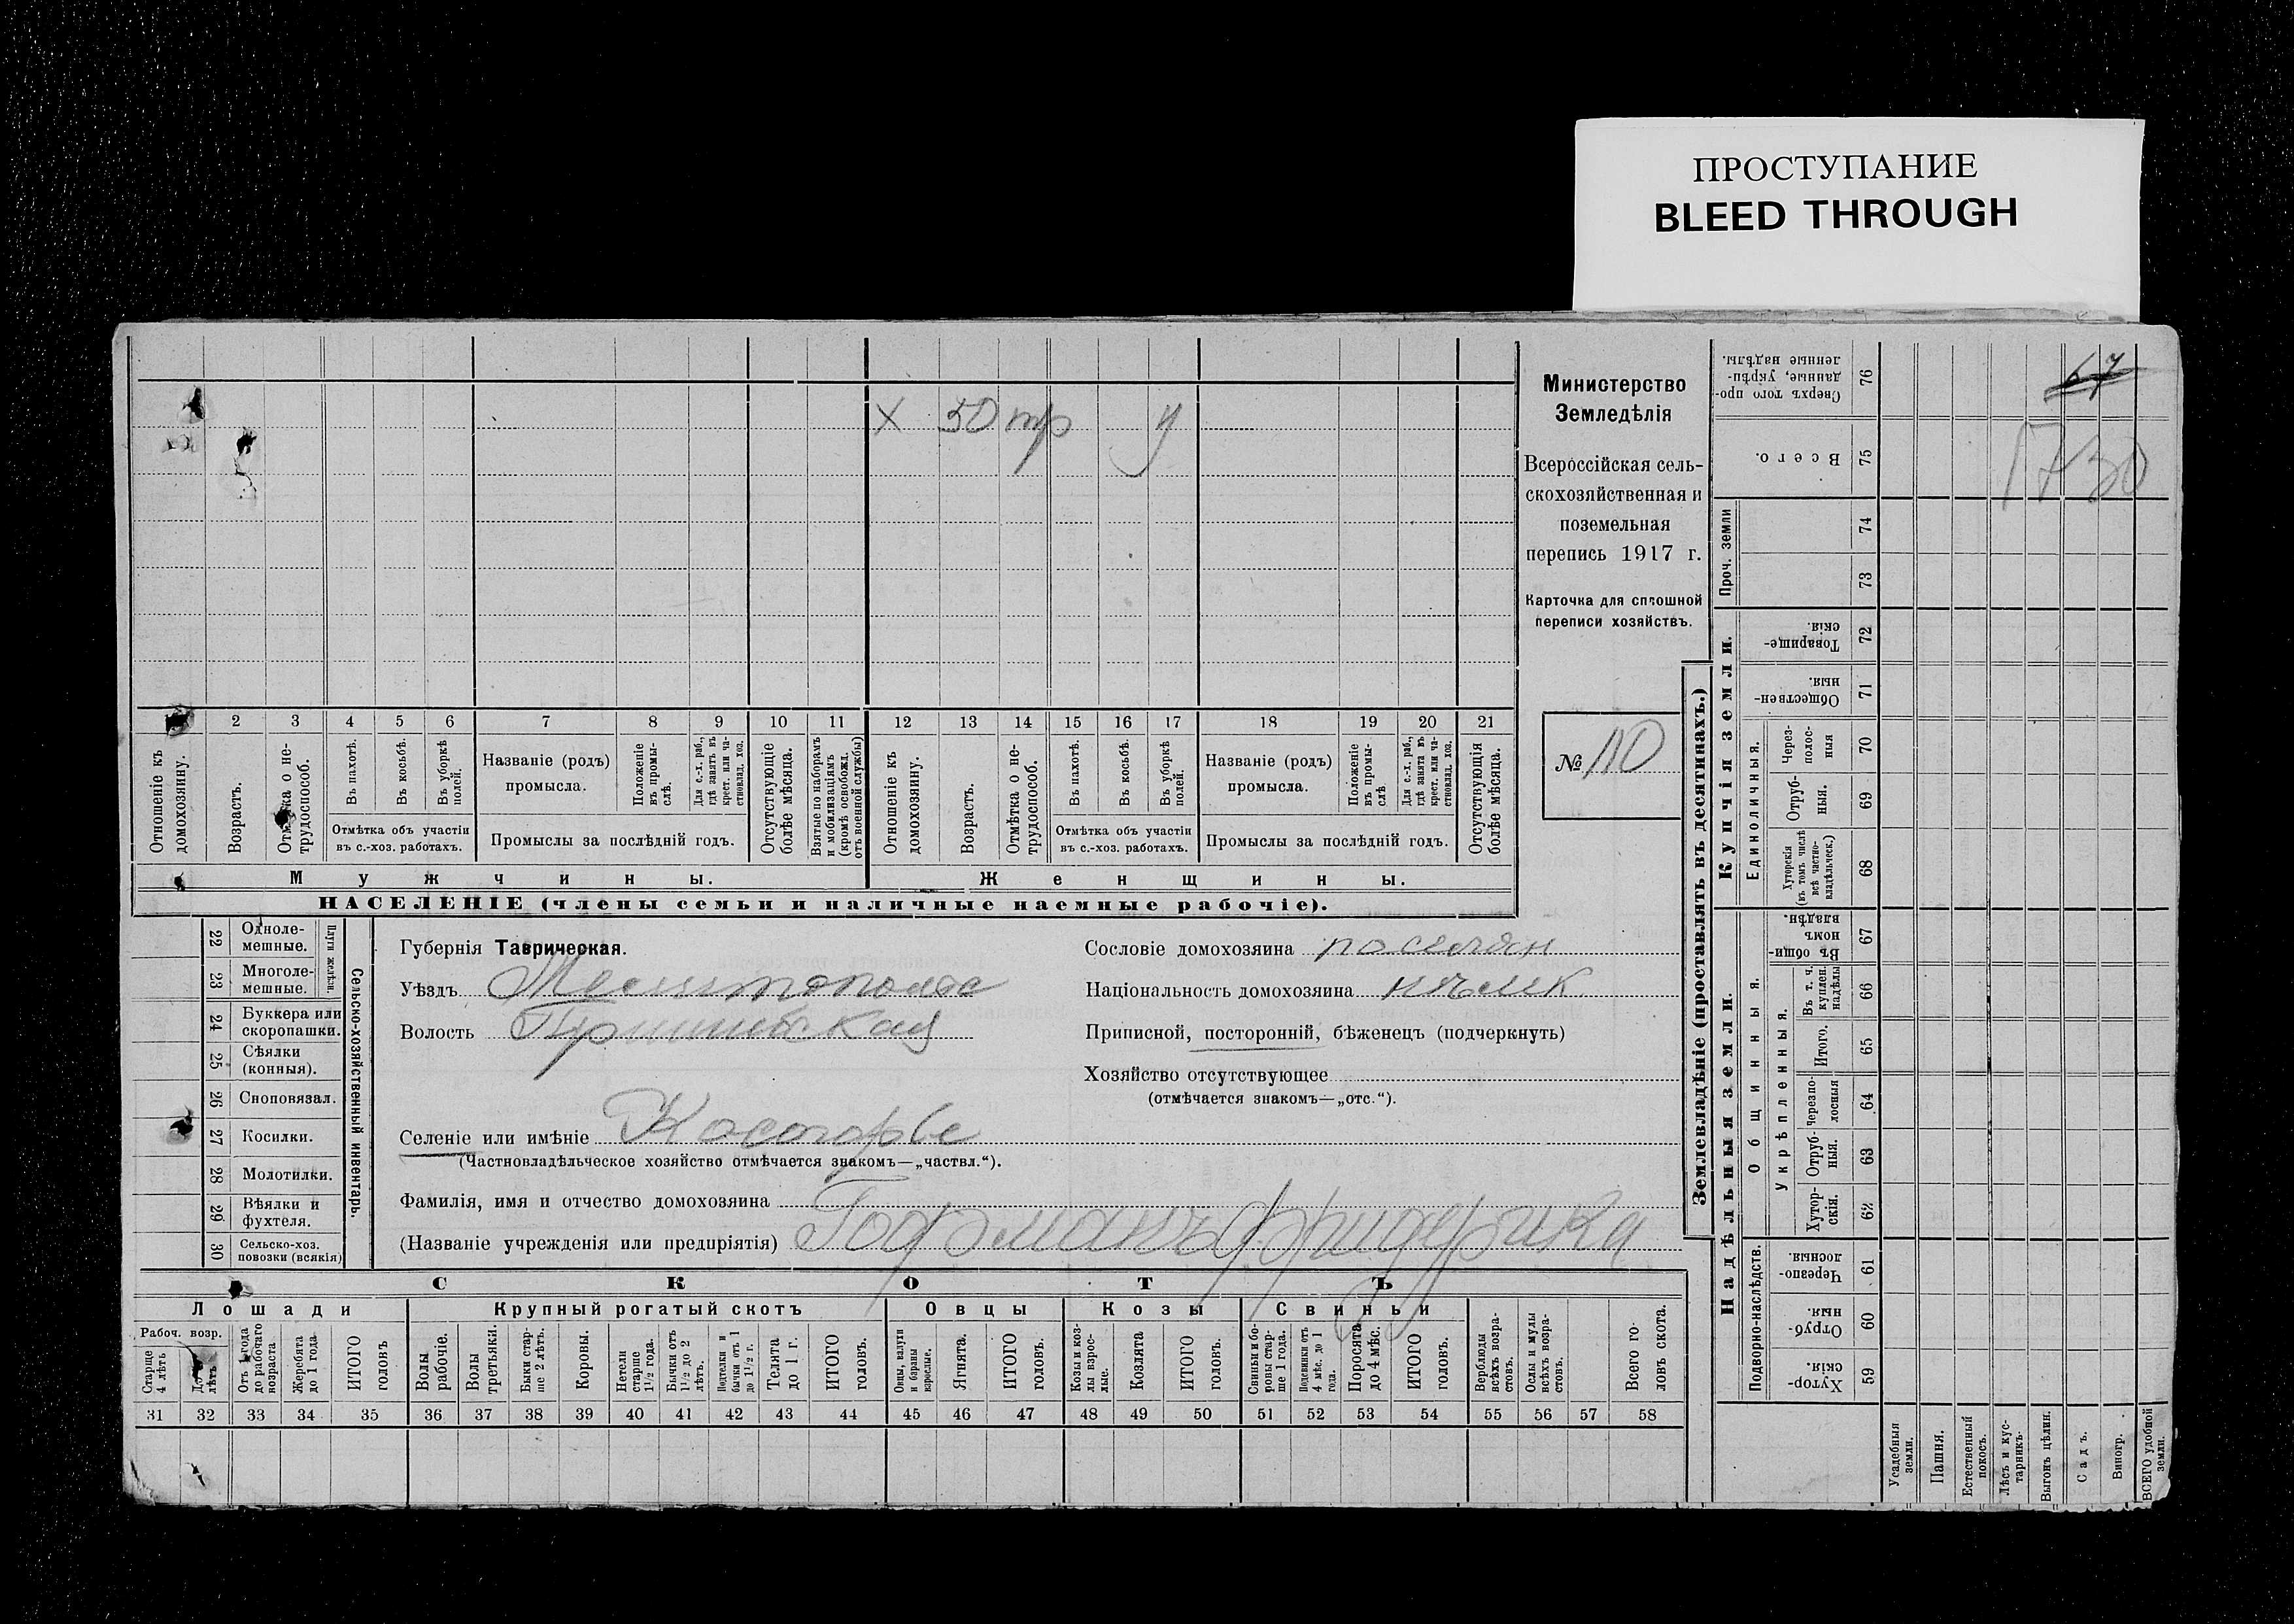 ПРОСТУПАНИЕ
BLEED THROUGH
67
1730
X 50 тр у
1 2 3 4 5 6 7 8 9 10 11 12 13 14 15 16 17 18 19 20 21
Отношеніе къ домохозяину.
Возрастъ.
Отмѣтка о не-
трудоспособ.
Въ пахотѣ.
Въ косьбѣ.
Въ уборкѣ
полей.
Отмѣтка объ участіи
въ с.-хоз. работахъ.
Названіе (родъ)
промысла.
Положеніе
въ промы-
слѣ.
Для с.-х. раб.,
гдѣ занятъ въ
крест. или ча-
стновлад. хоз.
Промыслы за послѣдній годъ.
Отсутствующіе
болѣе мѣсяца.
Взятые по наборамъ
и мобилизаціямъ
(кромѣ освобожд.
отъ военной службы)
Отношеніе къ
домохозяину.
Возрастъ.
Отмѣтка о не-
трудоспособ.
Въ пахотѣ.
Въ косьбѣ.
Въ уборкѣ
полей.
Отмѣтка объ участіи
въ с.-хоз. работахъ.
Названіе (родъ)
промысла.
Положеніе
въ промы-
слѣ
Для с.-х. раб.,
гдѣ занята въ
крест. или ча-
стновлад. хоз.
Промыслы за послѣдній годъ.
Отсутствующія
болѣе мѣсяца.
Мужчины.
Женщины.
НАСЕЛЕНІЕ (члены семьи и наличные наемные рабочіе).
Министерство
Земледѣлія
Всероссійская сель-
скохозяйственная и
поземельная
перепись 1917 г.
Карточка для сплошной
переписи хозяйствъ.
№ 110
22 Одноле-
мешные.
23 Многоле-
мешные.
Плуги желѣзн.
24 Буккера или
скоропашки.
25 Сѣялки
(конныя).
26 Сноповязал.
27 Косилки.
28 Молотилки.
29 Вѣялки и
фухтеля.
30 Сельско-хоз.
повозки (всякія)
Сельско-хозяйственный инвентарь.
Губернія Таврическая.
Уѣздъ Мелитополь
Волость Пришибская
Селеніе или имѣніе Косогорье
(Частновладѣльческое хозяйство отмѣчается знакомъ—„частвл.“).
Фамилія, имя и отчество домохозяина
(Названіе учрежденія или предпріятія) Гофманъ Фридерика
Сословіе домохозяина поселян
Національность домохозяина нѣмк.
Приписной, посторонній, бѣженецъ (подчеркнуть)
Хозяйство отсутствующее
(отмѣчается знакомъ—„отс.“).
СКОТЪ
Лошади
Рабоч. возр.
Старше
4 лѣтъ
До 4
лѣтъ
Отъ 1 года
до рабочаго
возраста
Жеребята
до 1 года
ИТОГО
головъ
Крупный рогатый скотъ
Волы
рабочіе.
Волы
третьяки.
Быки стар-
ше 2 лѣтъ.
Коровы.
Нетели
старше
1½ года.
Бычки отъ
1½ до 2
лѣтъ.
Подтелки и
бычки отъ 1
до 1½ г.
Телята
до 1 г.
ИТОГО
головъ.
Овцы
Овцы, валухи
и бараны
взрослые.
Ягнята.
ИТОГО
головъ.
Козы
Козы и коз-
лы взрос-
лые.
Козлята
ИТОГО
головъ.
Свиньи
Свиньи и бо-
ровы стар-
ше 1 года.
Подсвинки отъ
4 мѣс. до 1
года.
Поросята
до 4 мѣс.
ИТОГО
головъ.
Верблюды
всѣхъ возра-
стовъ.
Ослы и мулы
всѣхъ возра-
стовъ.
Всего го-
ловъ скота.
31 32 33 34 35 36 37 38 39 40 41 42 43 44 45 46 47 48 49 50 51 52 53 54 55 56 57 58
Землевладѣніе (проставлять въ десятинахъ.)
Сверхъ того про-
данные, укрѣп-
ленные надѣлы. 76
Всего. 75
Проч. земли
74
73
Купчія земли.
Товарище-
скія. 72
Обществен-
ныя. 71
Единоличныя.
Через-
полос-
ныя 70
Отруб-
ныя. 69
Хуторскія
(въ томъ числѣ
всѣ частно-
владѣльческ.) 68
Надѣльныя земли.
Общинныя.
Въ общин-
номъ
владѣн. 67
Укрѣпленныя.
Въ т. ч.
куплен.
надѣлы 66
Итого. 65
Черезпо-
лосныя 64
Отруб-
ныя. 63
Хутор-
скія. 62
Подворно-наслѣдств.
Черезпо-
лосныя 61
Отруб-
ныя. 60
Хутор-
скія. 59
Усадебныя
земли.
Пашня.
Естественный
покосъ.
Лѣсъ и кус-
тарникъ.
Выгонъ цѣлин.
Садъ.
Виногр.
ВСЕГО удобной
земли.